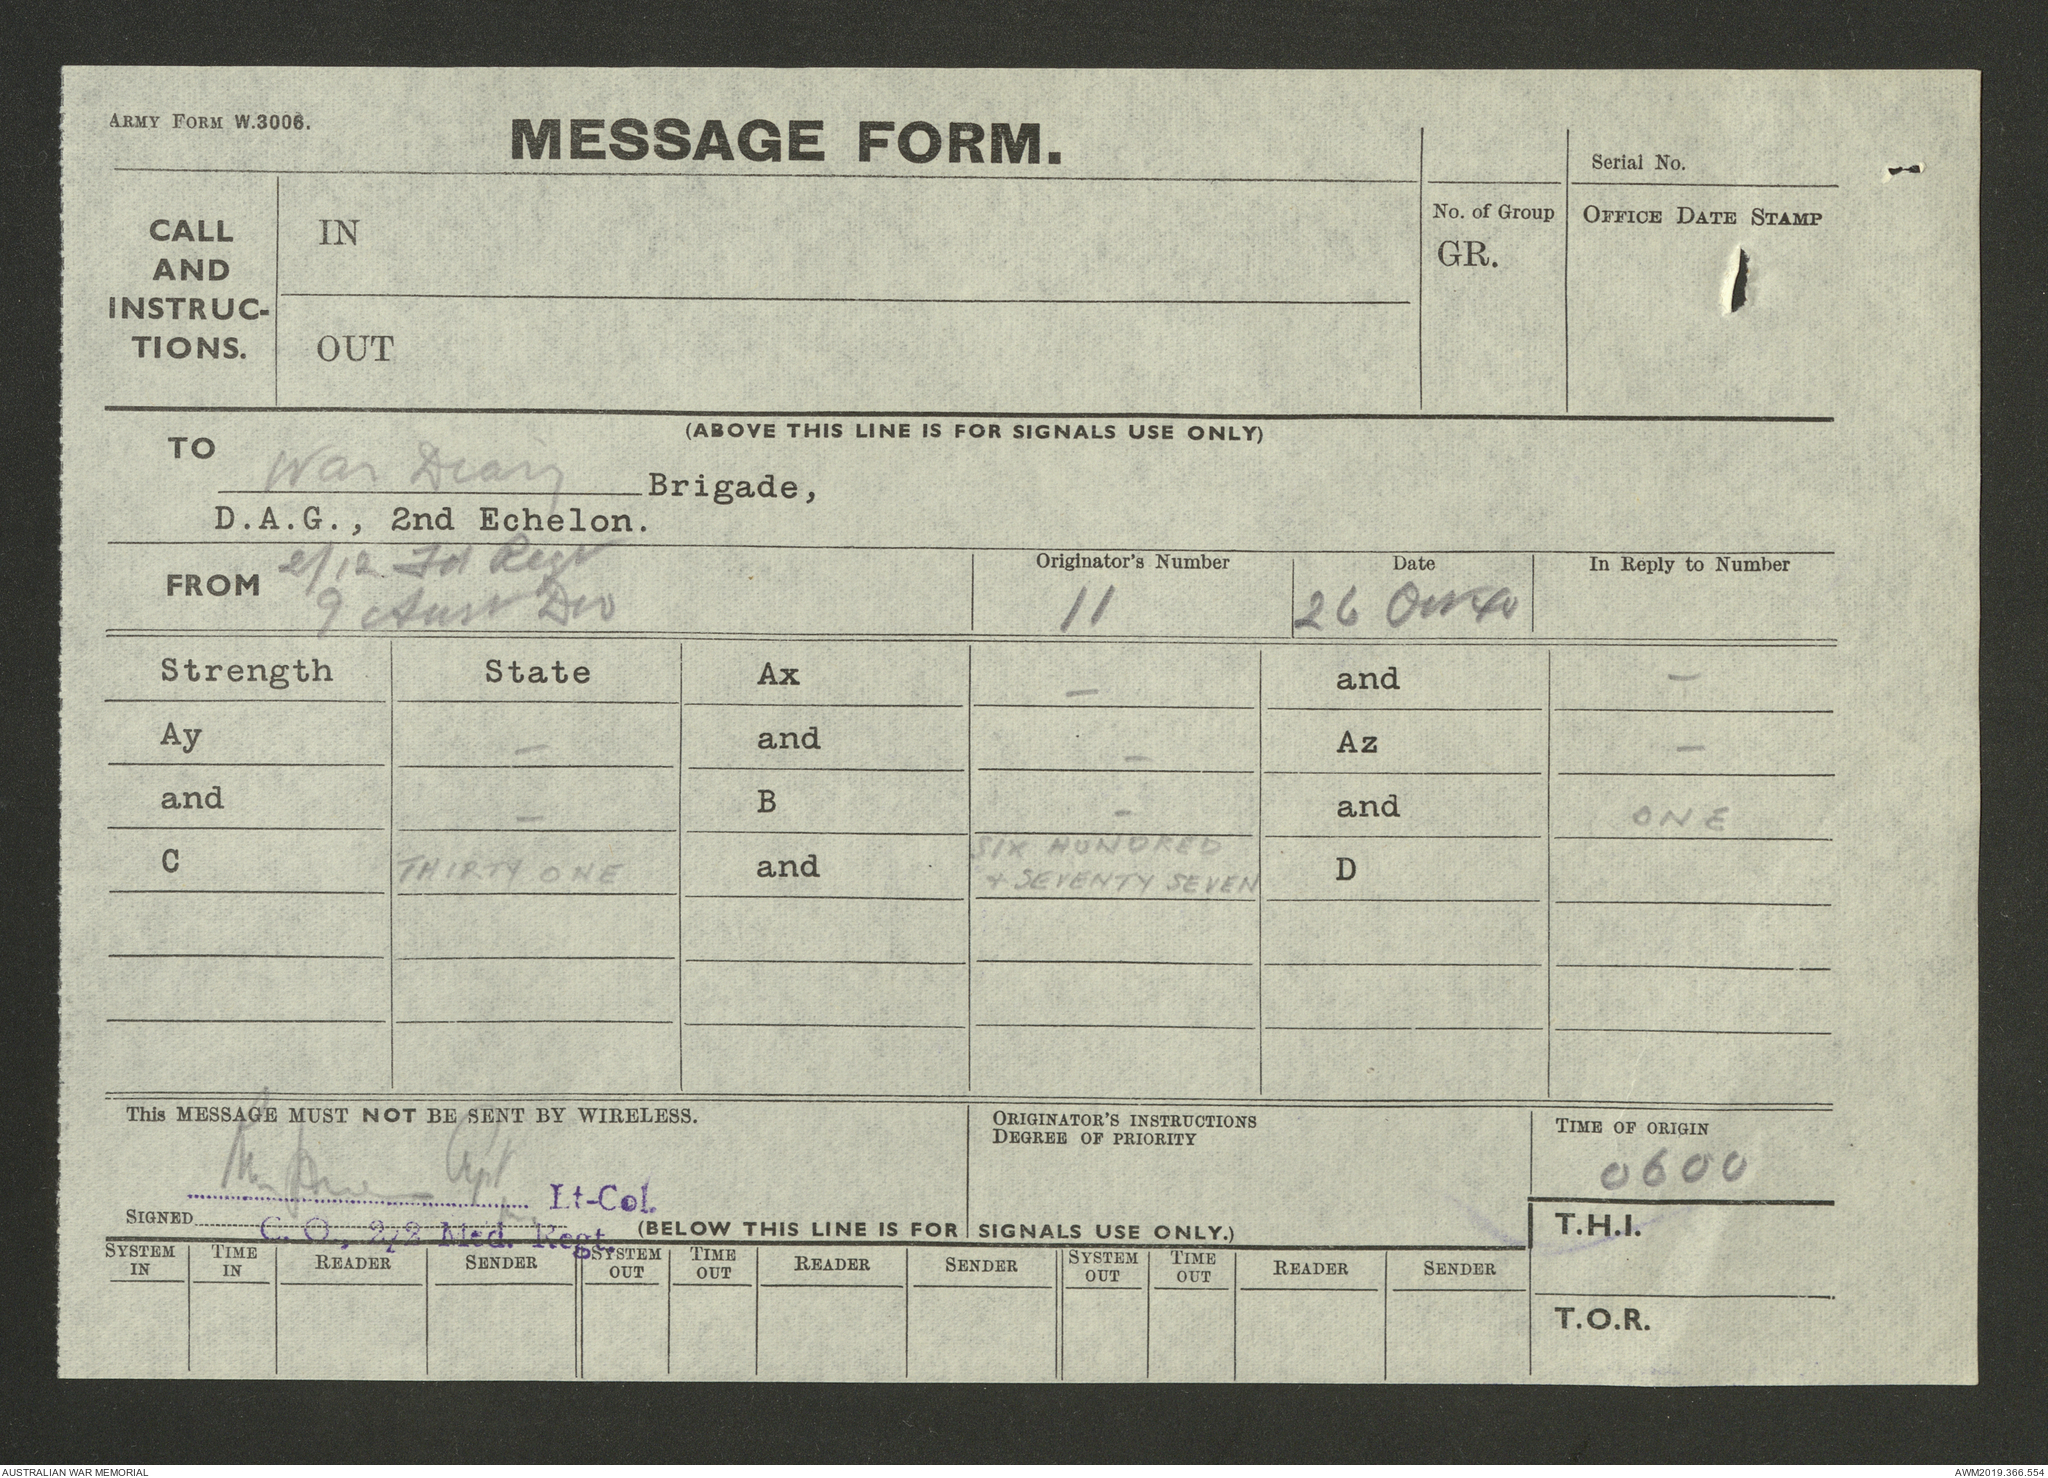 ARMY FORM W.3006.
MESSAGE FORM.
Serial No.
CALL
AND
INSTRUC-
TIONS.
IN
OUT
No. of Group
GR.
OFFICE DATE STAMP
(ABOVE THIS LINE IS FOR SIGNALS USE ONLY)
TO
War Diary Brigade,
D.A.G., 2nd Echelon.
FROM
2/12 Fd Regt
9 Aust Div
Originator's Number
11
Date
26
In Reply to Number
Strength State Ax — and —
Ay — and — Az —
and — B — and ONE
C THIRTY ONE and SIX HUNDRED
+ SEVENTY SEVEN D
This MESSAGE MUST NOT BE SENT BY WIRELESS.
ORIGINATOR'S INSTRUCTIONS
DEGREE OF PRIORITY
TIME OF ORIGIN
0600
Capt
Lt-Col.
SIGNED
C. O., 2/2 Med. Regt.
(BELOW THIS LINE IS FOR SIGNALS USE ONLY.)
T.H.I.
SYSTEM IN TIME IN READER SENDER SYSTEM OUT TIME OUT READER SENDER SYSTEM OUT TIME OUT READER SENDER
T.O.R.
AUSTRALIAN WAR MEMORIAL
AWM2019.366.554